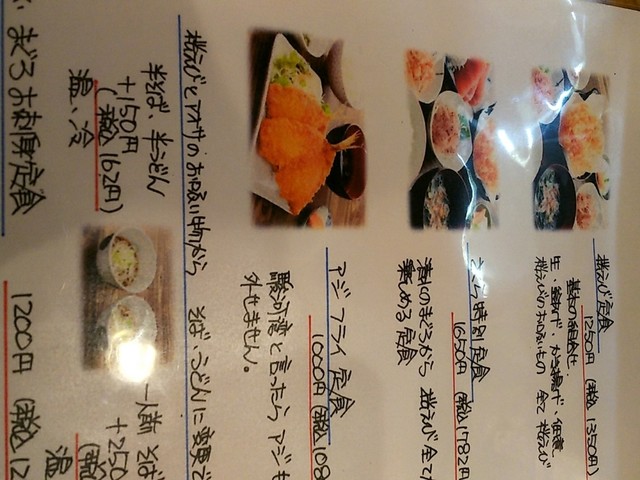 桜えび定食
1250円(税込1350円)
基本の組合せ
生、釜あげ、かき揚げ、佃煮、
桜えびのお吸いもの 全て桜えび
特別定食
1650円(税込1782円
清水のまぐろから 桜えび全て
楽しめる定食
アジフライ定食
1000円(税込108
駿河湾と言ったら アジも
外せません。
桜えびとアオサのお吸い物から そば、うどんに変更で
半そば、半うどん
+150円
(税込162円)
温、冷
一人前 そば
+250
(税込
温
まぐろお刺身定食
1200円(税込12